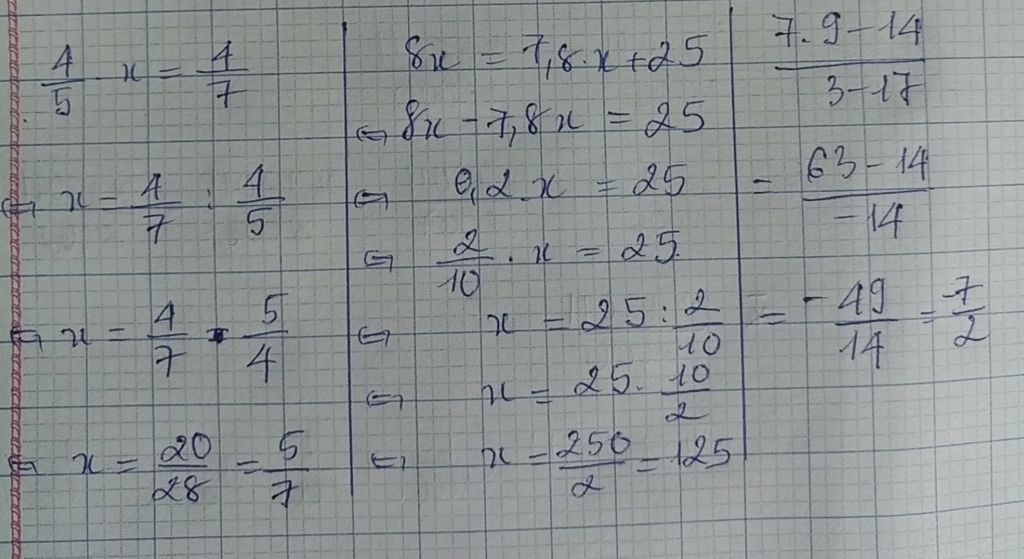 4/5 · x = 4/7
⇔ x = 4/7 : 4/5
⇔ x = 4/7 · 5/4
⇔ x = 20/28 = 5/7
8x = 7,8·x+25
⇔ 8x - 7,8x = 25
⇔ 0,2.x = 25
⇔ 2/10 · x = 25.
⇔ x = 25 : 2/10
⇔ x = 25. 10/2
⇔ x = 250/2 = 125
7.9-14/3-17
= 63-14/-14
= -49/14 = -7/2